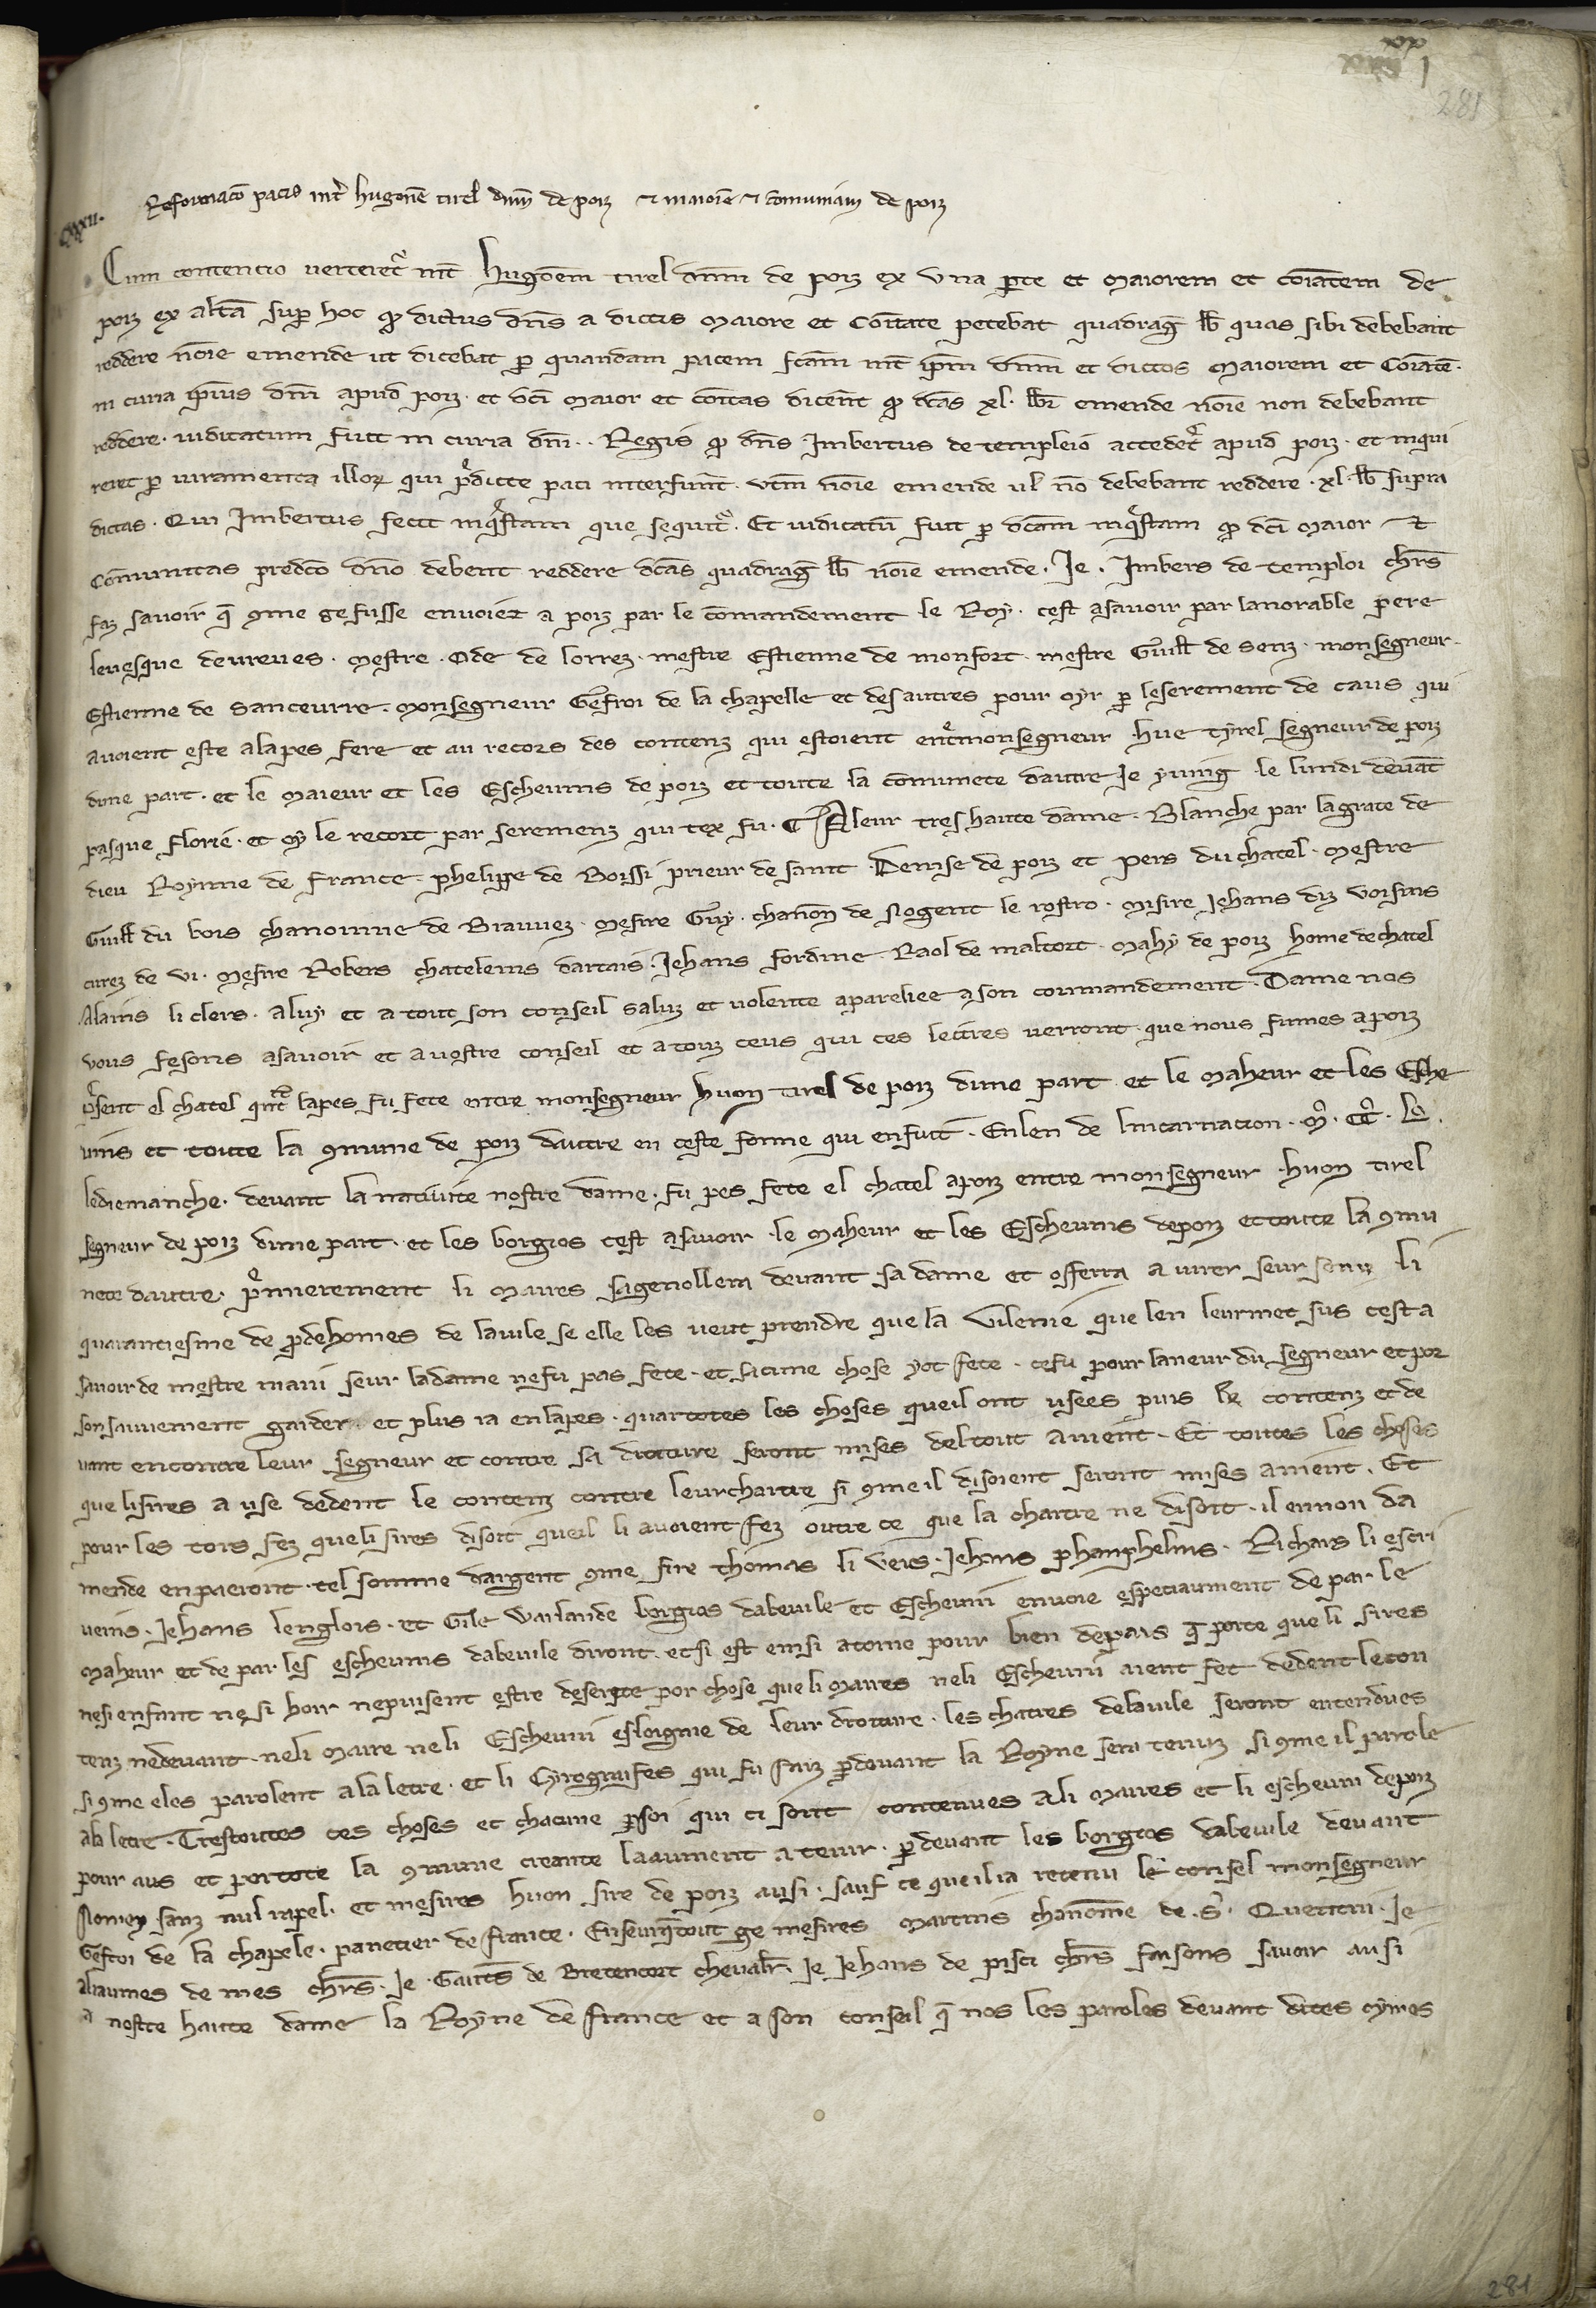 281
Cxxxii.
Reformacō pacis int̾ hugonē tirel dnm̄ de poiz ⁊ maiorē ⁊ cōmuniam de poiz
Cum contencio verteret᷑ int̾ Hugōem tirel dnm̄ de poiz ex vna ꝑte et Maiorem et cōi̾tatem de
poiz ex altā sup̱ hoc qđ dictus dn̄s a dictis Maiore et Cōi̾tate petebat quadrag̾ lb̾ quas sibi debebant
reddere nōie emende ut dicebat ꝑ quandam pacem fcām int̾ ip̄m dnm̄ et dictos Maiorem et Coi̾tatē.
in curia ip̄ius dnī apud poiz. et dcī Maior et cōi̾tas dicerent qđ dcās xl. lb̾ emende nōie non debebant
reddere. iudicatum fuit in curia dnī. Regis qđ dn̄s Imbertus de templeio accederet᷑ apud poiz. et inqui
reret ꝑ iuramenta illoꝝ qui p̾dicte paci interfuer̄t. vtm̄ nōie emende ul̾ nō debebant reddere. xl. lb̾ supra
dictas. Qui Imbertus fecit inq̾stam que sequit᷑. Et iudicatū fuit ꝑ dcām inq̾stam qđ dcī Maior ⁊
Cōmunitas predc̄o dnō debent reddere dcās quadrag̾ lb̾ nōie emende. Je. Imbers de temploi chrs̄
faz savoir q̄ ꝯme ge fusse envoiez a poiz par le cōmandement le Roy. cest asavoir par lanorable pere
levesque devreues. Mestre. Ode de lorrez. mestre Estienne de monfort. mestre Guill̾ de Senz. monsegneur.
Estienne de Sanceurre. Monsegneur Gefroi de la chapelle et des autres pour oyr ꝑ le serement de ceaus qui
avoient este a la pes fere et au recors des contenz qui estoient ent̾ monsegneur hue tyrel segneur de poiz
dune part. et le Maieur et les Eschevins de poiz et toute la cōmunete dautre Je y ving̾ le lundi devāt
pasque florie. et oy le recort par seremenz qui tex fu. ⁋ A leur tres haute dame. Blanche par la grace de
dieu Roynne de France. phelippe de Boissi prieur de saint Denise de poiz et pers du chatel. Mestre
Guill̾ du bois chanoinne de Biauvez. Mesire Guy. chanoñ de Nogent le rostro. Misire Jehans diz voisins
curez de vi. Mesire Robers chatelenis dartais. Jehans fordine. Raol de malcort. Mahy de poiz home de chatel
Alains li clers. a luy et a tout son conseil saluz et volente apareliee a son commandement. Dame nos
vous fesons asavoir et a vostre conseil et a touz ceus qui ces lettres verront. que nous fumes a poiz
p̾sent el chatel qn̄t la pes fu fete entre monsegneur huon tirel de poiz dune part et le Maheur et les Esche
vins et toute la ꝯmune de poiz dautre en ceste forme qui ensuit. En len de lincarnation. M. CC. L.
le diemanche. devant la nativite nostre dame. fu pes fete el chatel a poiz entre monsegneur huon tirel
segneur de poiz dune part. et les borgios cest asavoir le Maheur et les Eschevins de poiz et toute la ꝯmu
nete dautre. p̾mierement li Maires sagenollera devant sa dame et offerra a iurer seur li
quarantiesme de ꝑdehomes de la vile se elle les veut prendre que la vilenie que len leur met sus cest a
savoir de mestre main seur la dame ne fu pas fete. et si cune chose y ot fete. ce fu pour laneur du segneur et por
son sauvement garder. et plus ia en la pes. quar totes les choses que il ont usees puis le contenz et de
vant encontre leur segneur et contre sa droiture seront mises del tout a nient. Et toutes les choses
que li sires a use dedent le contenz contre leur chartre si ꝯme il disoient seront mises a nient. Et
pour les tors fez que li sires disoit que il li avoient fez outre ce que la chartre ne disoit. il en non da
mende en paeront. tel somme dargent ꝯme sire thomas li vers. Jehans phanphelins. Richars li escri
veins. Jehans lenglois. et Gile Warlande borgios dabevile et Eschevin envoie especiaument de par le
Maheur et de par les eschevins dabevile diront. et si est einsi atorne pour bien de pais q̄ perte que li sires
ne si enfant ne si hoir ne puisent estre deserite por chose que li Maires ne li Eschevin aient fet dedent le con
tenz ne devant. ne li Maire ne li Eschevin esloignie de leur droiture. les chartres de la vile seront entendues
si ꝯme eles parolent a la letre. et li Cyrografes qui fu faiz ꝑdevant la Royne sera tenuz si ꝯme il parole
a la letre. Trestoutes ces choses et chacune ꝑ soi qui ci sont contenues a li Maires et li eschevin de poiz
pour aus et por tote la ꝯmune creante laiaument a tenir. ꝑdevant les borgios dabevile devant
Nomez sanz nul rapel. et mesires huon sire de poiz ausi. sauf ce que il i a retenu le consel monsegneur
Gefroi de la chapele. panetier de France. Enseurq̄tout ge mesires Martins chanoinne de. S̾. Quentin. Je
aliaumes de mes chrs̄. Je Gautiers de Bretencort chevalr̄. Je Jehans de pisci chrs̄ faisons savoir ausi
a nostre haute dame la Royne de France et a son conseil q̄ nos les paroles devant dites oymes
281